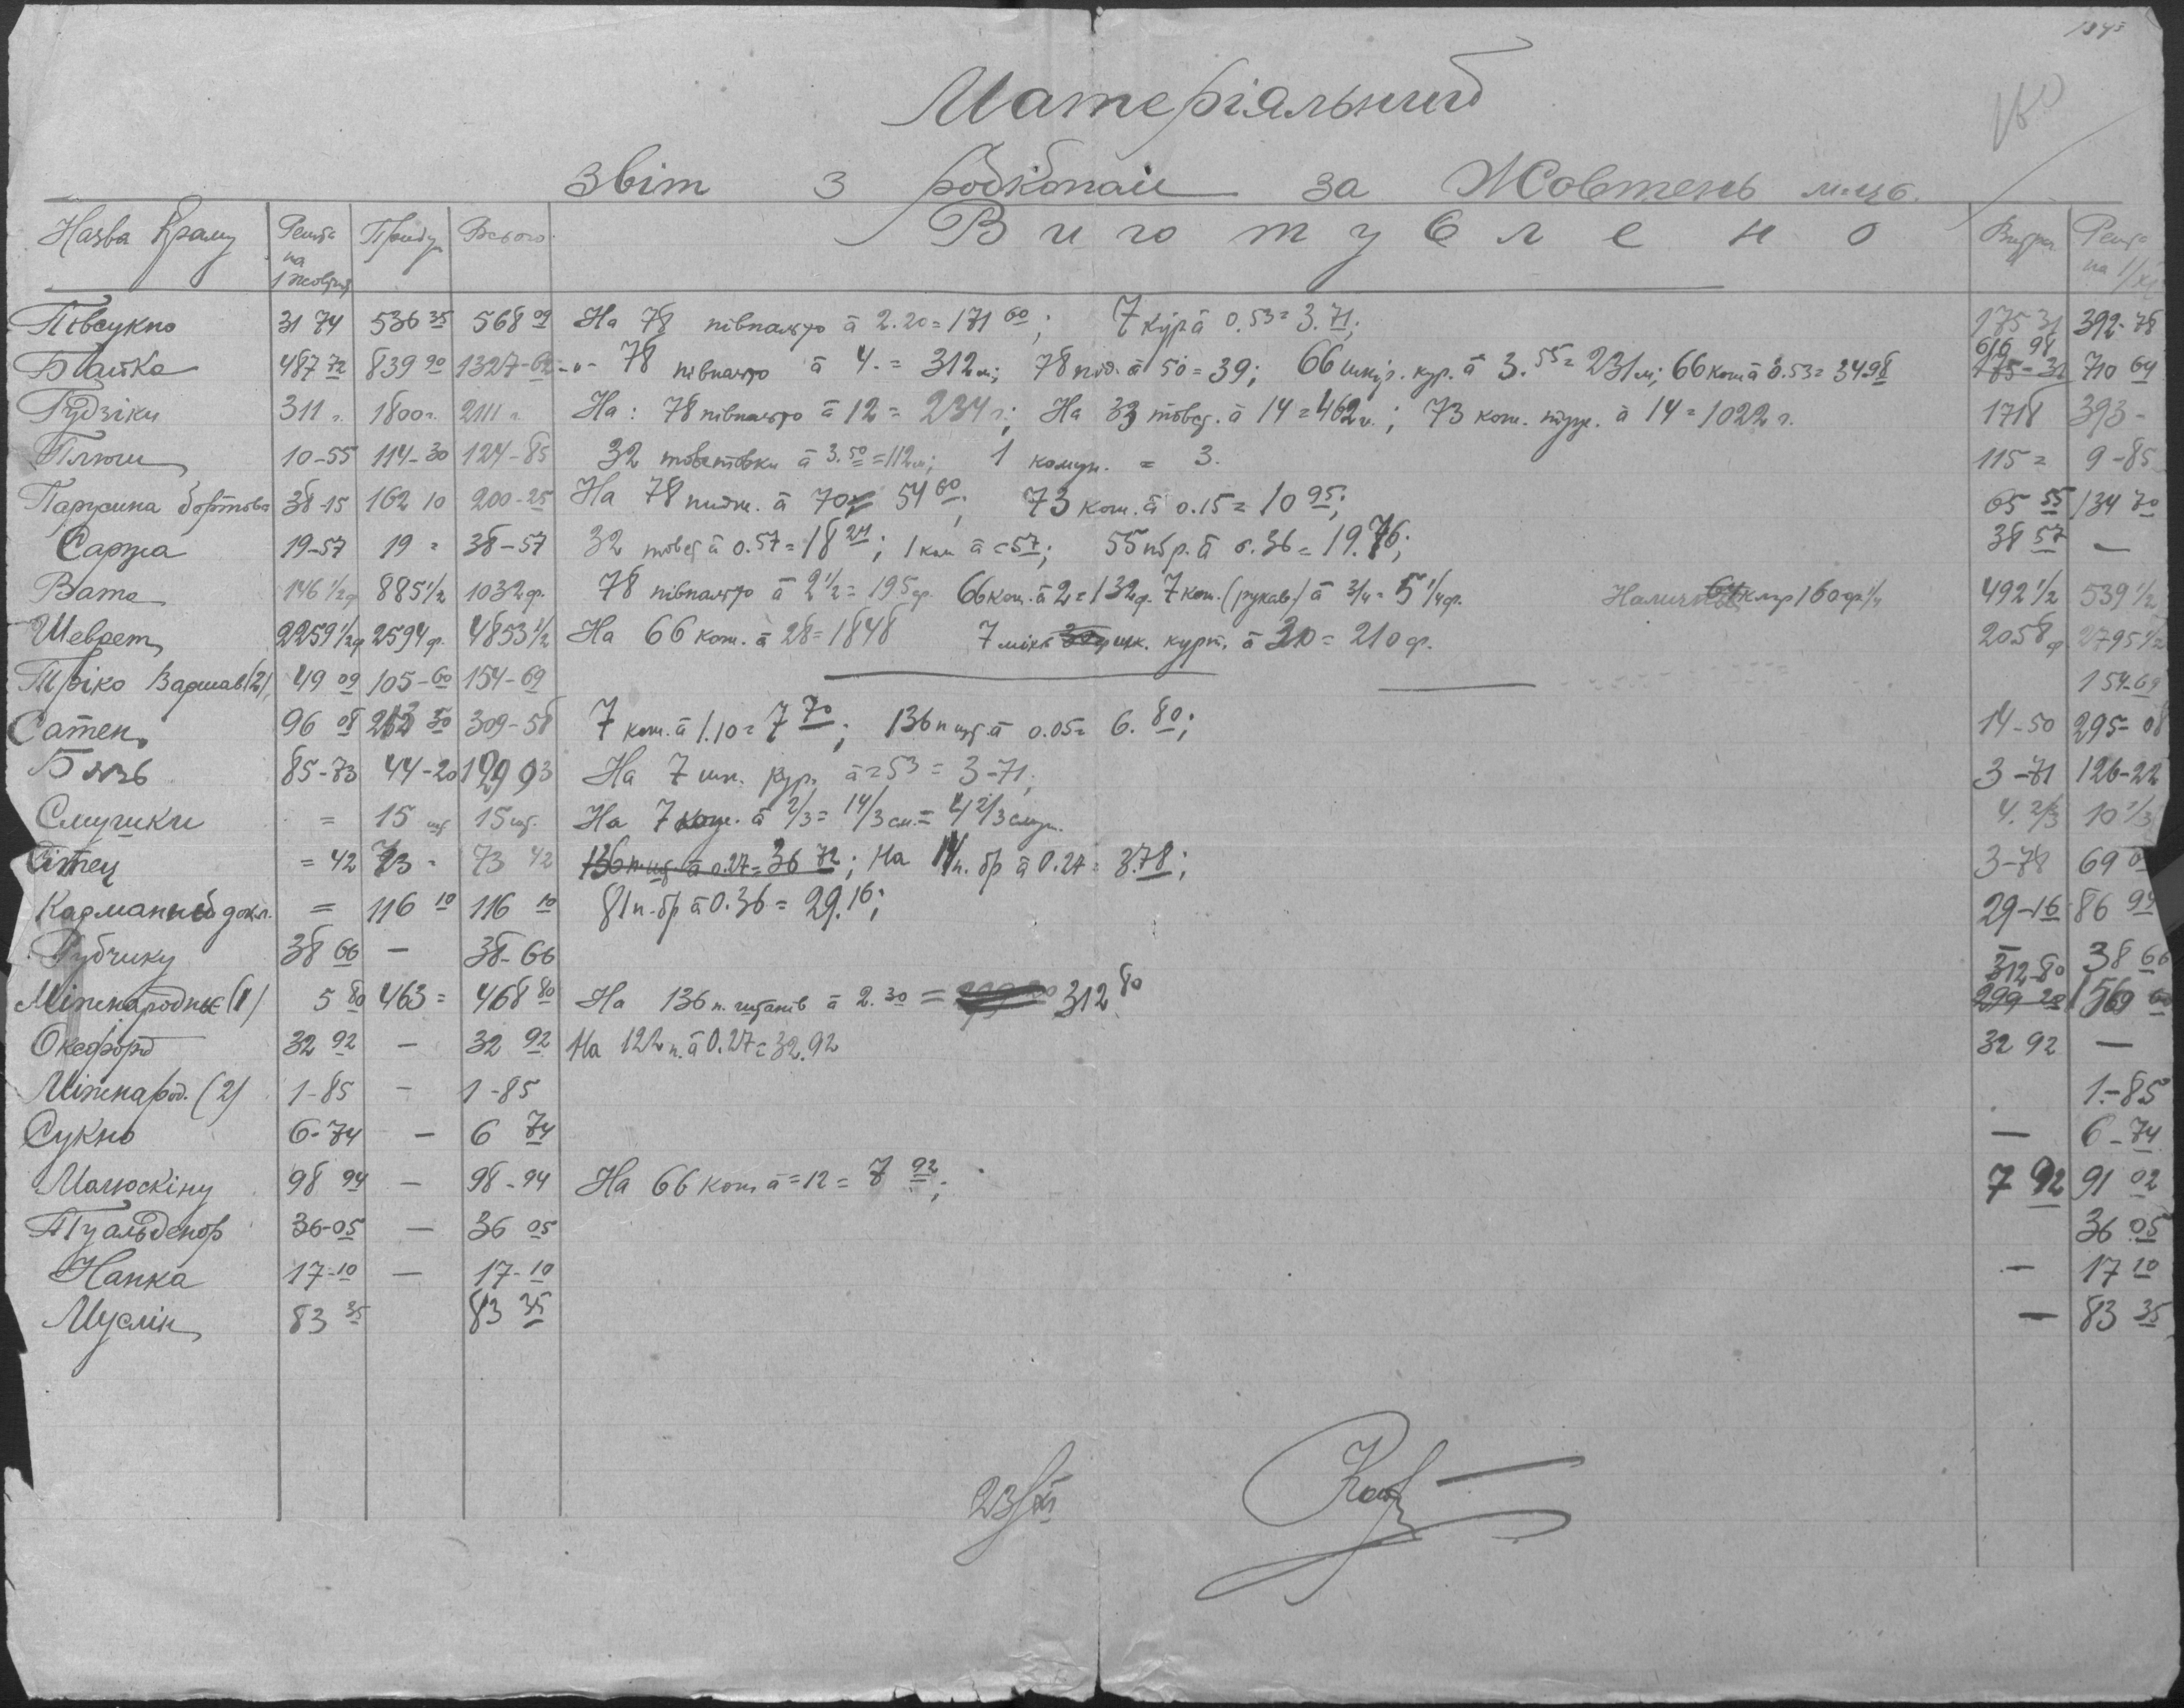 Матеріяльний
звіт з Робкопом за Жовтень м-ць.
Назва краму Решта на 1 жовтня Приб. Всього Виготувлено Витра Решта на 1/XI
Півсукно 31 74 536 35 568 09 На 78 півпальто à 2.20 = 171 60; 7 кур à 0.53 = 3.71; 175 31 392-78
Байка 487 72 839 90 1327-62 -"- 78 півпальто à 4. = 312 м; 78 à 50 = 39; 66 шкір. кур. à 3.55 = 231 м; 66 кош à 0.53 = 34 98 616 98 710 64
Гудзіки 311 1800 2111 На: 78 півпальто à 12 = 234; На 33 товст. à 14 = 462; 73 кож. à 14 = 1022 1718 393-
Плюш 10-55 114-30 124-85 32 товстовки à 3.50 = 112 м; 1 = 3. 115 = 9-85
Парусина бортова 38-15 162 10 200-25 На 78 à 70 = 54 60; 73 кож. à 0.15 = 10 95; 65 55 134 70
Саржа 19-57 19 = 38-57 32 товст à 0.57 = 18 24; 1 à = 57; 55 п бр. à 0.36 = 19.76; 38 57 —
Вата 146 1/2 ф 885 1/2 1032 ф. 78 півпальто à 2 1/2 = 195 ф. 66 кож. à 2 = 132 ф. 7 кож. (рукав) à 3/4 = 5 1/4 ф. 160 ф 1/4 492 1/2 539 1/2
Шеврет 2259 1/2 ф 2594 ф. 4853 1/2 На 66 кож. à 28 = 1848 7 шк. курт. à 30 = 210 ф. 2058 ф 2795 1/2
Тріко Варшав (2) 49 09 105-60 154-69 — — 154-69
Сатен 96 08 213 50 309-58 7 кож. à 1.10 = 7 70; 136 п шт. à 0.05 = 6.80; 14-50 295-08
Бязь 85-73 44-20 129 93 На 7 шк. кур. à = 53 = 3-71; 3-71 126-22
Смушки = 15 шт 15 шт. На 7 кож. à 2/3 = 14/3 см. = 4 2/3 смуш. 4. 2/3 10 1/3
= 42 73 - 73 42 136 п шт à 0.27 = 36 72; На 14 п. бр à 0.27 = 3.78; 3-78 69
Карманний 116 10 116 10 81 п. бр à 0.36 = 29.16; 29-16 86 94
Рубчику 38 66 — 38-66 — 38 66
Міжнародньє (1) 5 80 463 = 468 80 На 136 п. штанів à 2.30 = 312 80 312-80 299 20 156
Оксфорд 32 92 — 32 92 На 122 п. à 0.27 = 32.92 32 92 —
Міжнарод. (2) 1-85 - 1-85 1-85
Сукно 6-74 — 6 74 — 6-74
Малюскіну 98 94 — 98-94 На 66 кож à = 12 = 7 92; 7 92 91 02
Туальденор 36-05 — 36 05 36 05
Нанка 17-10 — 17-10 — 17 10
Муслін 83 35 83 35 — 83 35
23/XI